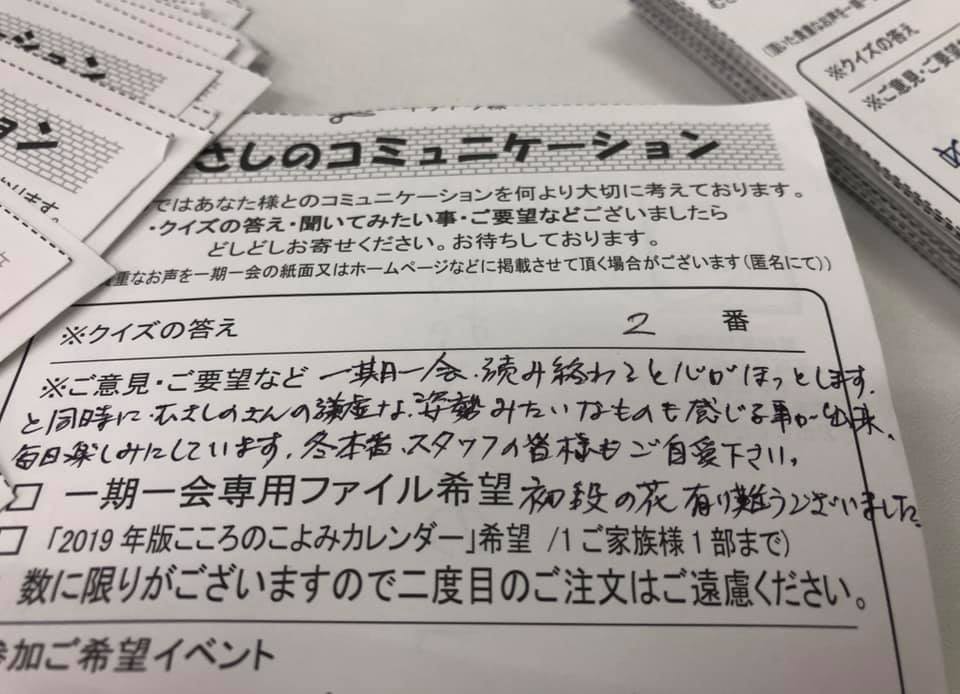 さしのコミュニケーション
ではあなた様とのコミュニケーションを何より大切に考えております。
・クイズの答え・聞いてみたい事・ご要望などございましたら
どしどしお寄せください。お待ちしております。
重なお声を一期一会の紙面又はホームページなどに掲載させて頂く場合がございます(匿名にて))
※クイズの答え 2 番
※ご意見・ご要望など 一期一会、読み終わると心がほっとします。
と同時に、むさしのさんの謙虚な、姿勢みたいなものも感じる事が出来、
毎日楽しみにしています。冬本番、スタッフの皆様もご自愛下さい。
□ 一期一会専用ファイル希望 初段の花 有り難うございました
□ 「2019年版こころのこよみカレンダー」希望 /1ご家族様1部まで)
数に限りがございますので二度目のご注文はご遠慮ください。
参加ご希望イベント
ーション
ョン
※クイズの答え
※ご意見・ご要望